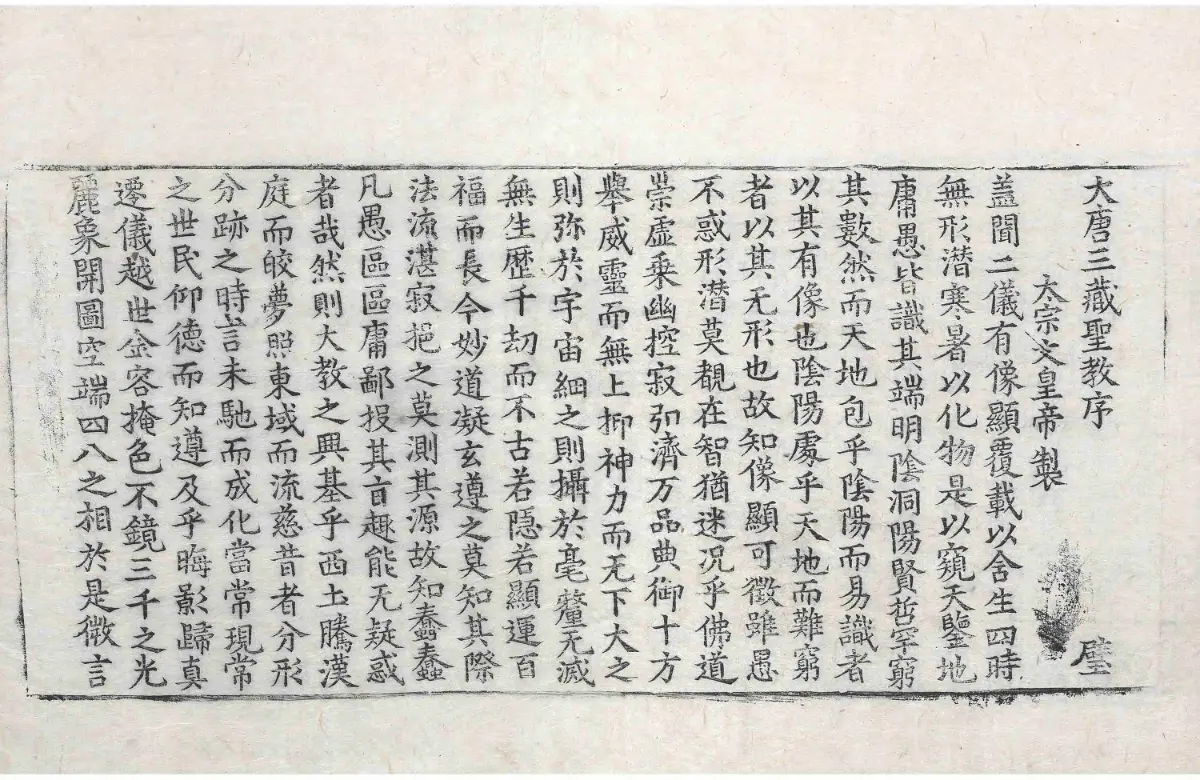 大唐三藏聖教序 璧
太宗文皇帝製
盖聞二儀有像顯覆載以含生四時
無形潜寒暑以化物是以窺天鑒地
庸愚皆識其端明陰洞陽賢哲罕窮
其數然而天地包乎陰陽而易識者
以其有像也陰陽處乎天地而難窮
者以其无形也故知像顯可徵雖愚
不惑形潜莫覩在智猶迷况乎佛道
崇虛乗幽控寂弘濟万品典御十方
舉威靈而無上抑神力而无下大之
則弥於宇宙細之則攝於毫釐无滅
無生歷千劫而不古若隐若顯運百
福而長今妙道凝玄遵之莫知其際
法流湛寂挹之莫測其源故知蠢蠢
凡愚區區庸鄙投其旨趣能无疑惑
者哉然則大教之興基乎西土騰漢
庭而皎夢照東域而流慈昔者分形
分跡之時言未馳而成化當常現常
之世民仰德而知遵及乎晦影歸真
遷儀越世金容掩色不鏡三千之光
麗象開圖空端四八之相於是微言